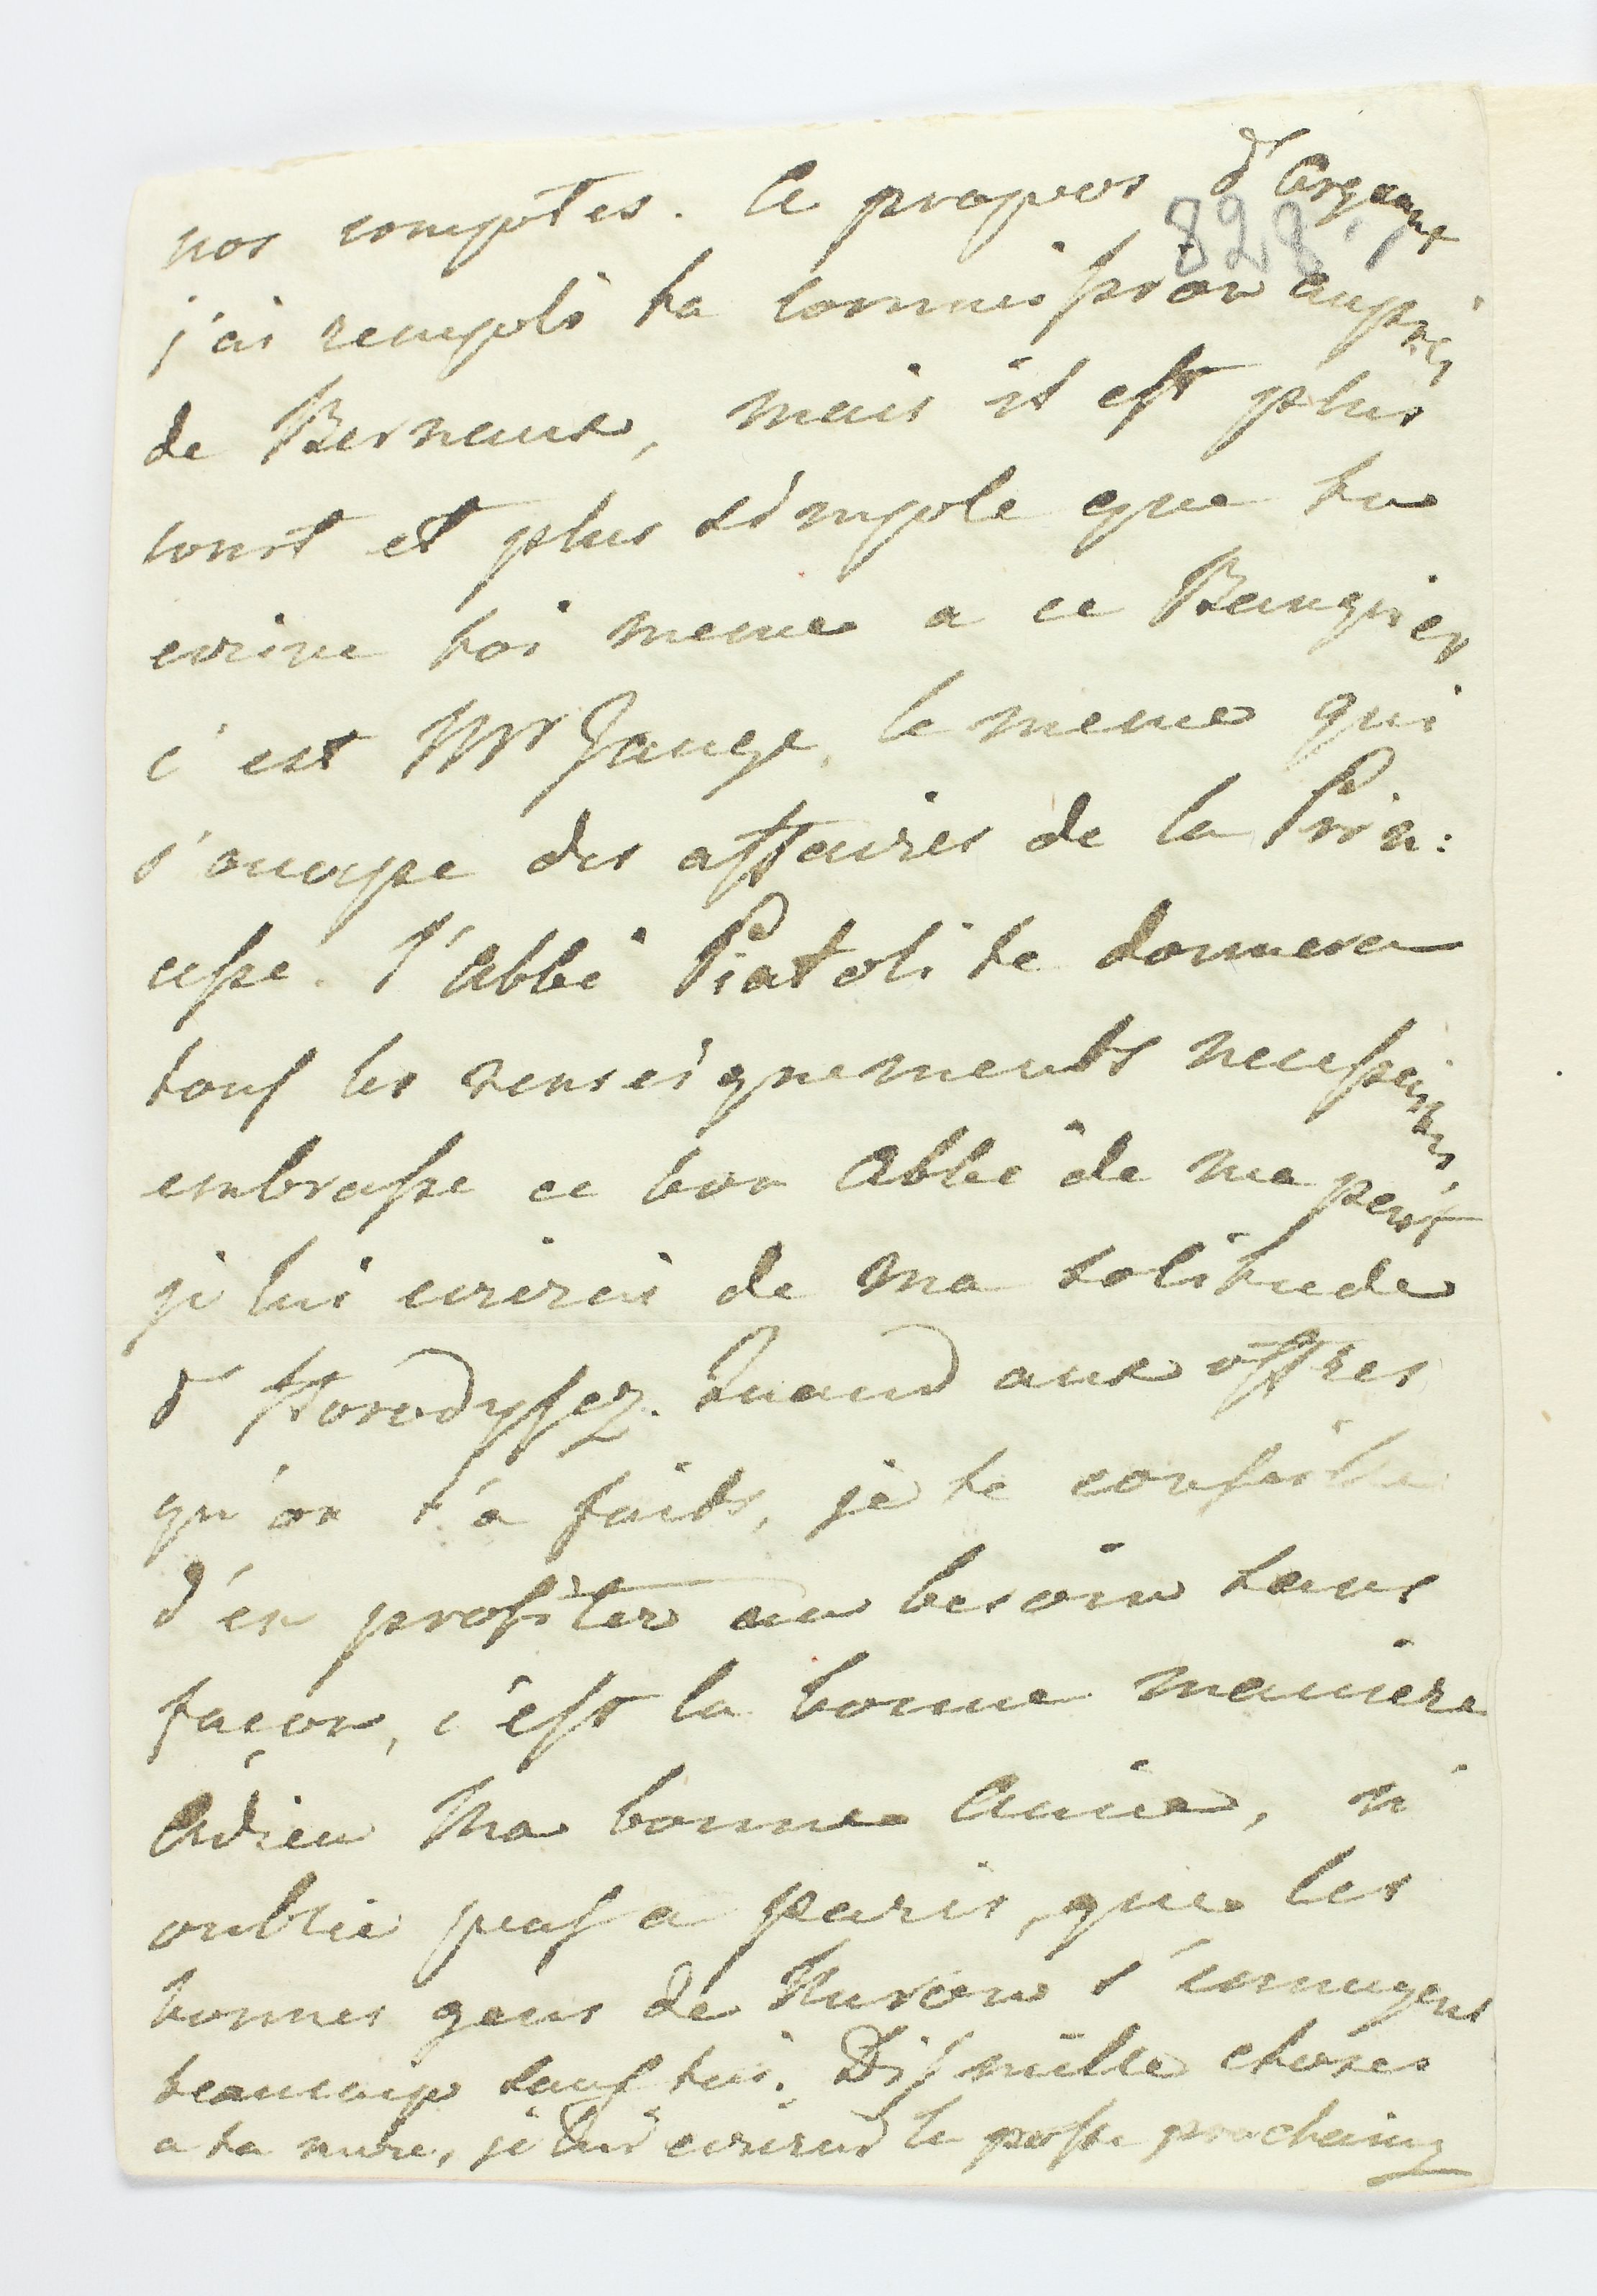 nos comptes. A propos d'Argent
828
j'ai rempli ta commission auprès
de Bernaux, mais il est plus
court et plus simple que tu
ecrive toi meme a ce Banquier
c'est Mr Jauge, le meme qui
s'occupe des affaires de la Prin:
cesse. l'Abbé Piatoli te donnera
tous les renseignements necessaires,
embrasse ce bon Abbé de ma part
je lui ecrirai de ma solitude
d'Horodyszcz. Quand aux offres
qu'on t'a faits, je te conseille
d'en profiter au besoin sans
façon, c'est la bonne maniere
Adieu Ma bonne Amie, n'
oublie pas a Paris, que les
bonnes gens de s'ennuyent
beaucoup sans toi. Dis mille choses
a ta mere, je lui ecrirai la poste prochaine